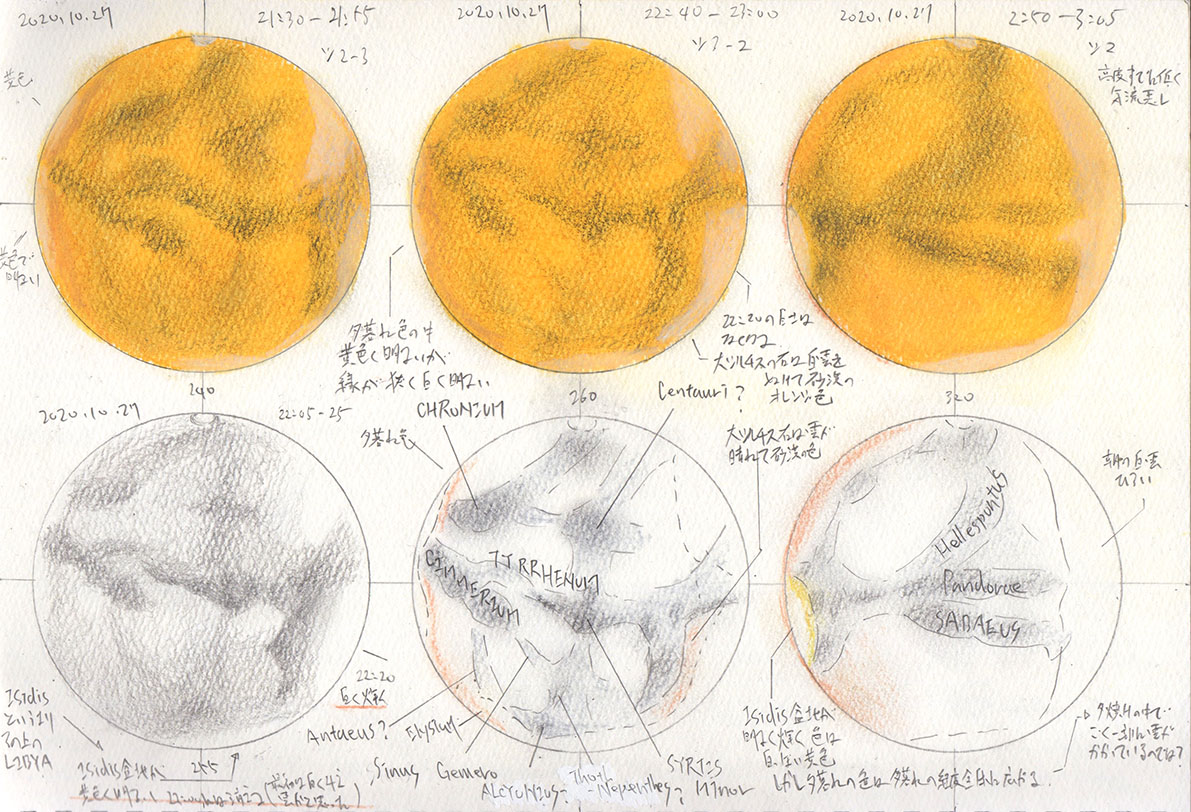 2020.10.27
21:30-21:55
ツ2-3
2020.10.27
22:40-23:00
ツ3-2
2020.10.27
2:50-3:05
ツ2
気流悪し
黄色
黄色で
明るい
夕暮れ色の中
黄色く明るいが
縁が狭く白く明るい
22:20の白さは
なくなる
大シルチスの右は白雲を
ぬけて砂漠の
オレンジ色
240
260
320
2020.10.27
22:05-25
CHRONIUM
夕暮れ色
Centauri?
大シルチス右は雲が
晴れて砂漠の色
朝の白雲
ひろい
TYRRHENUM
CIMMERIUM
Hellespontus
Pandorae
SABAEUS
22:20
白く輝く
Isidis
というより
LIBYA
Isidis盆地が
255
黄色く明るい
Antaeus?
Elysium
Sinus Gomero
ALCYONIUS
Thoth
-Nepenthes?
SYRTIS
Minor
Isidis盆地が
明るく輝く 色は
白っぽい黄色
しかし夕暮れの色は夕暮れの
夕焼けの中で
ごく一部に雲が
かかっているのでは?